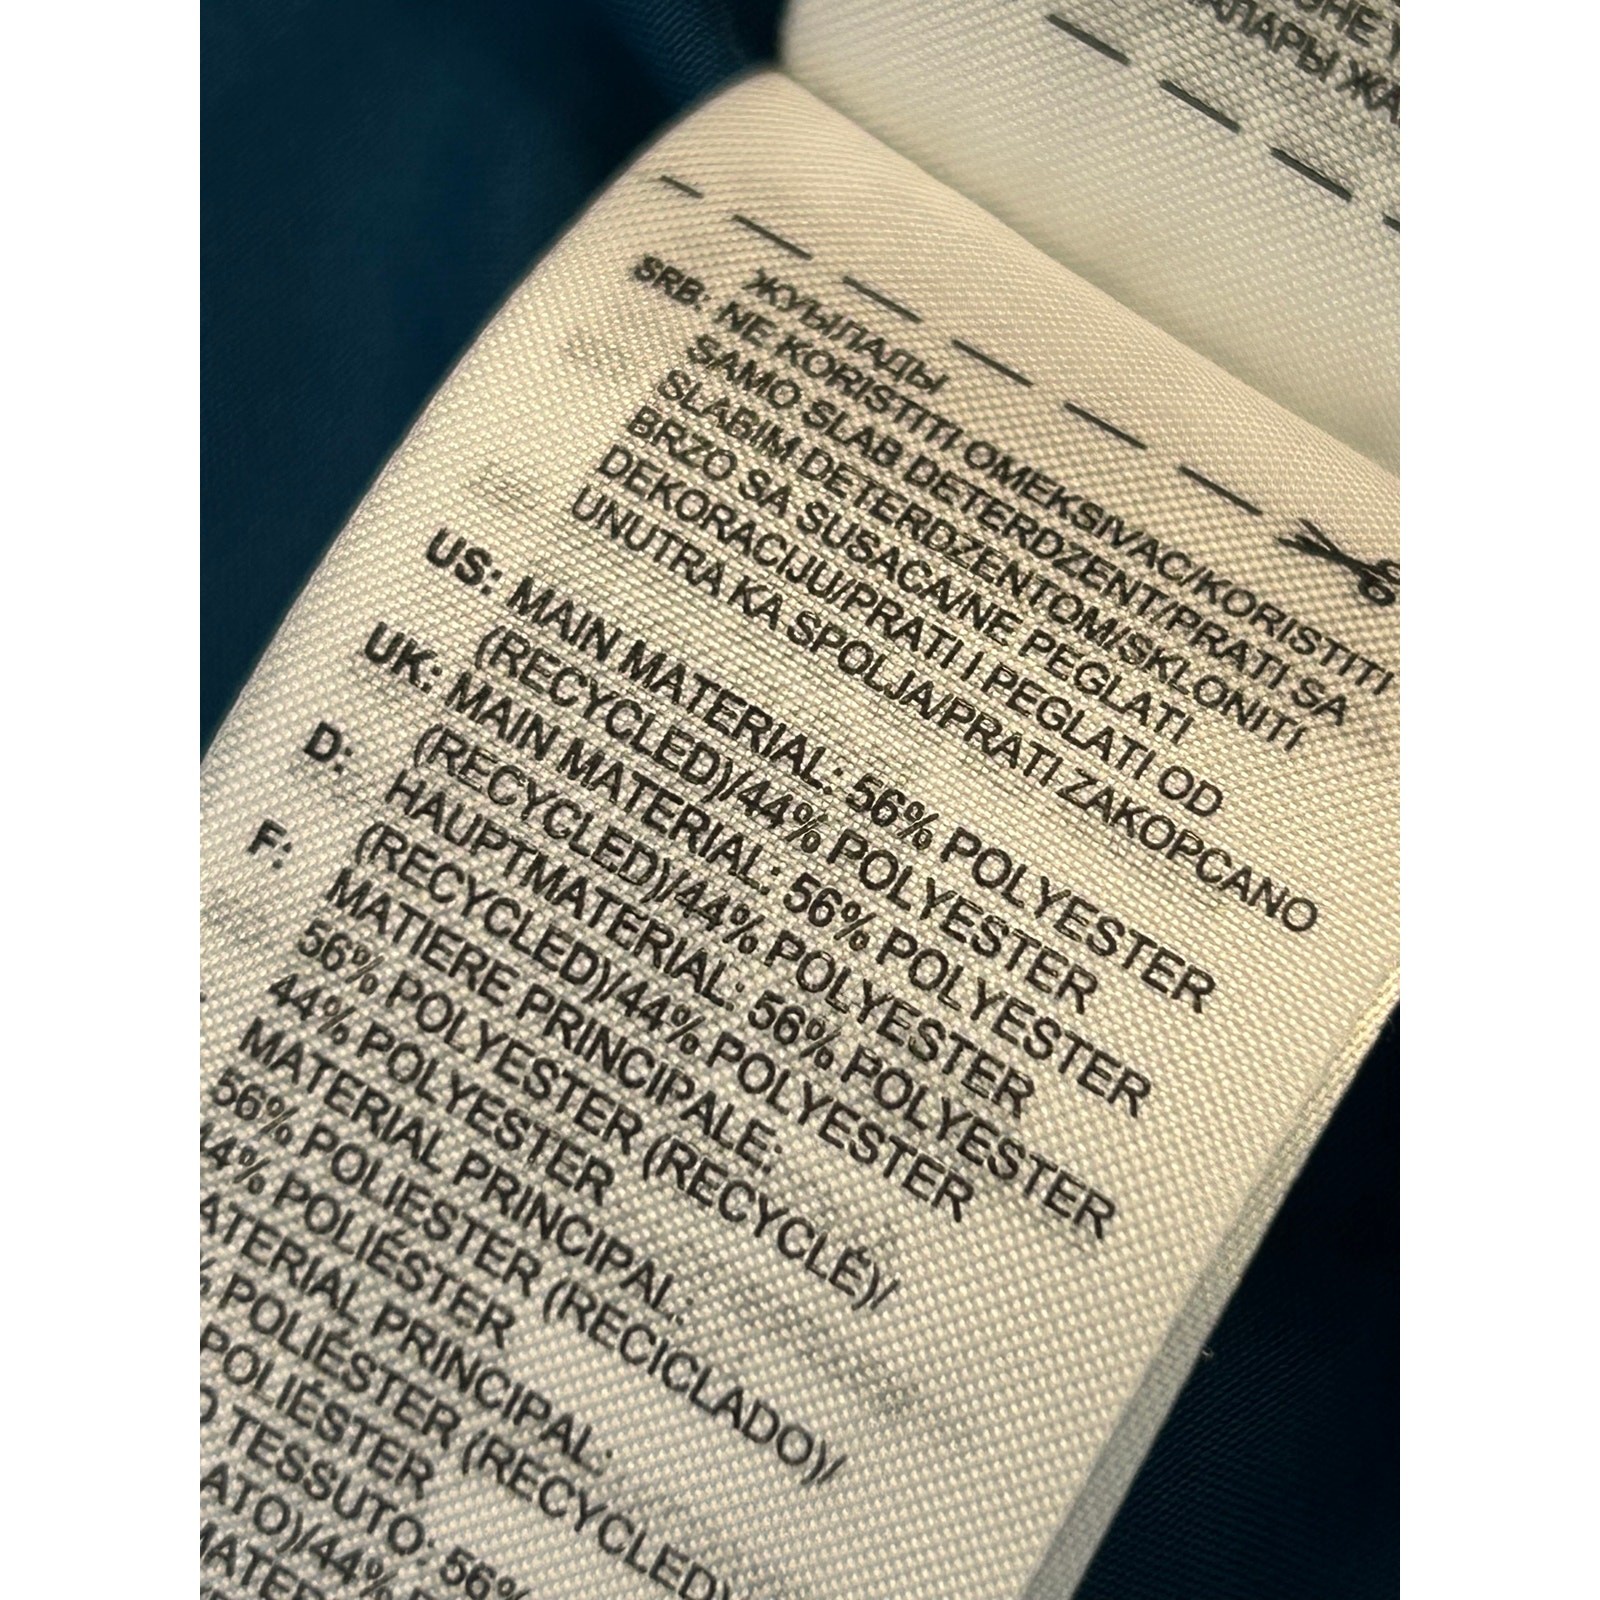 ЖУЫЛАДЫ
SRB: NE KORISTITI OMEKSIVAC/KORISTITI
SAMO SLAB DETERDZENT/PRATI SA
SLABIM DETERDZENTOM/SKLONITI
BRZO SA SUSACA/NE PEGLATI
DEKORACIJU/PRATI I PEGLATI OD
UNUTRA KA SPOLJA/PRATI ZAKOPCANO
US: MAIN MATERIAL: 56% POLYESTER
(RECYCLED)/44% POLYESTER
UK: MAIN MATERIAL: 56% POLYESTER
(RECYCLED)/44% POLYESTER
D: HAUPTMATERIAL: 56% POLYESTER
(RECYCLED)/44% POLYESTER
F: MATIERE PRINCIPALE:
56% POLYESTER (RECYCLÉ)/
44% POLYESTER
MATERIAL PRINCIPAL:
56% POLIESTER (RECICLADO)/
44% POLIÉSTER
MATERIAL PRINCIPAL:
% POLIÉSTER (RECYCLED)
POLIÉSTER
TESSUTO: 56%
ATO)/44%